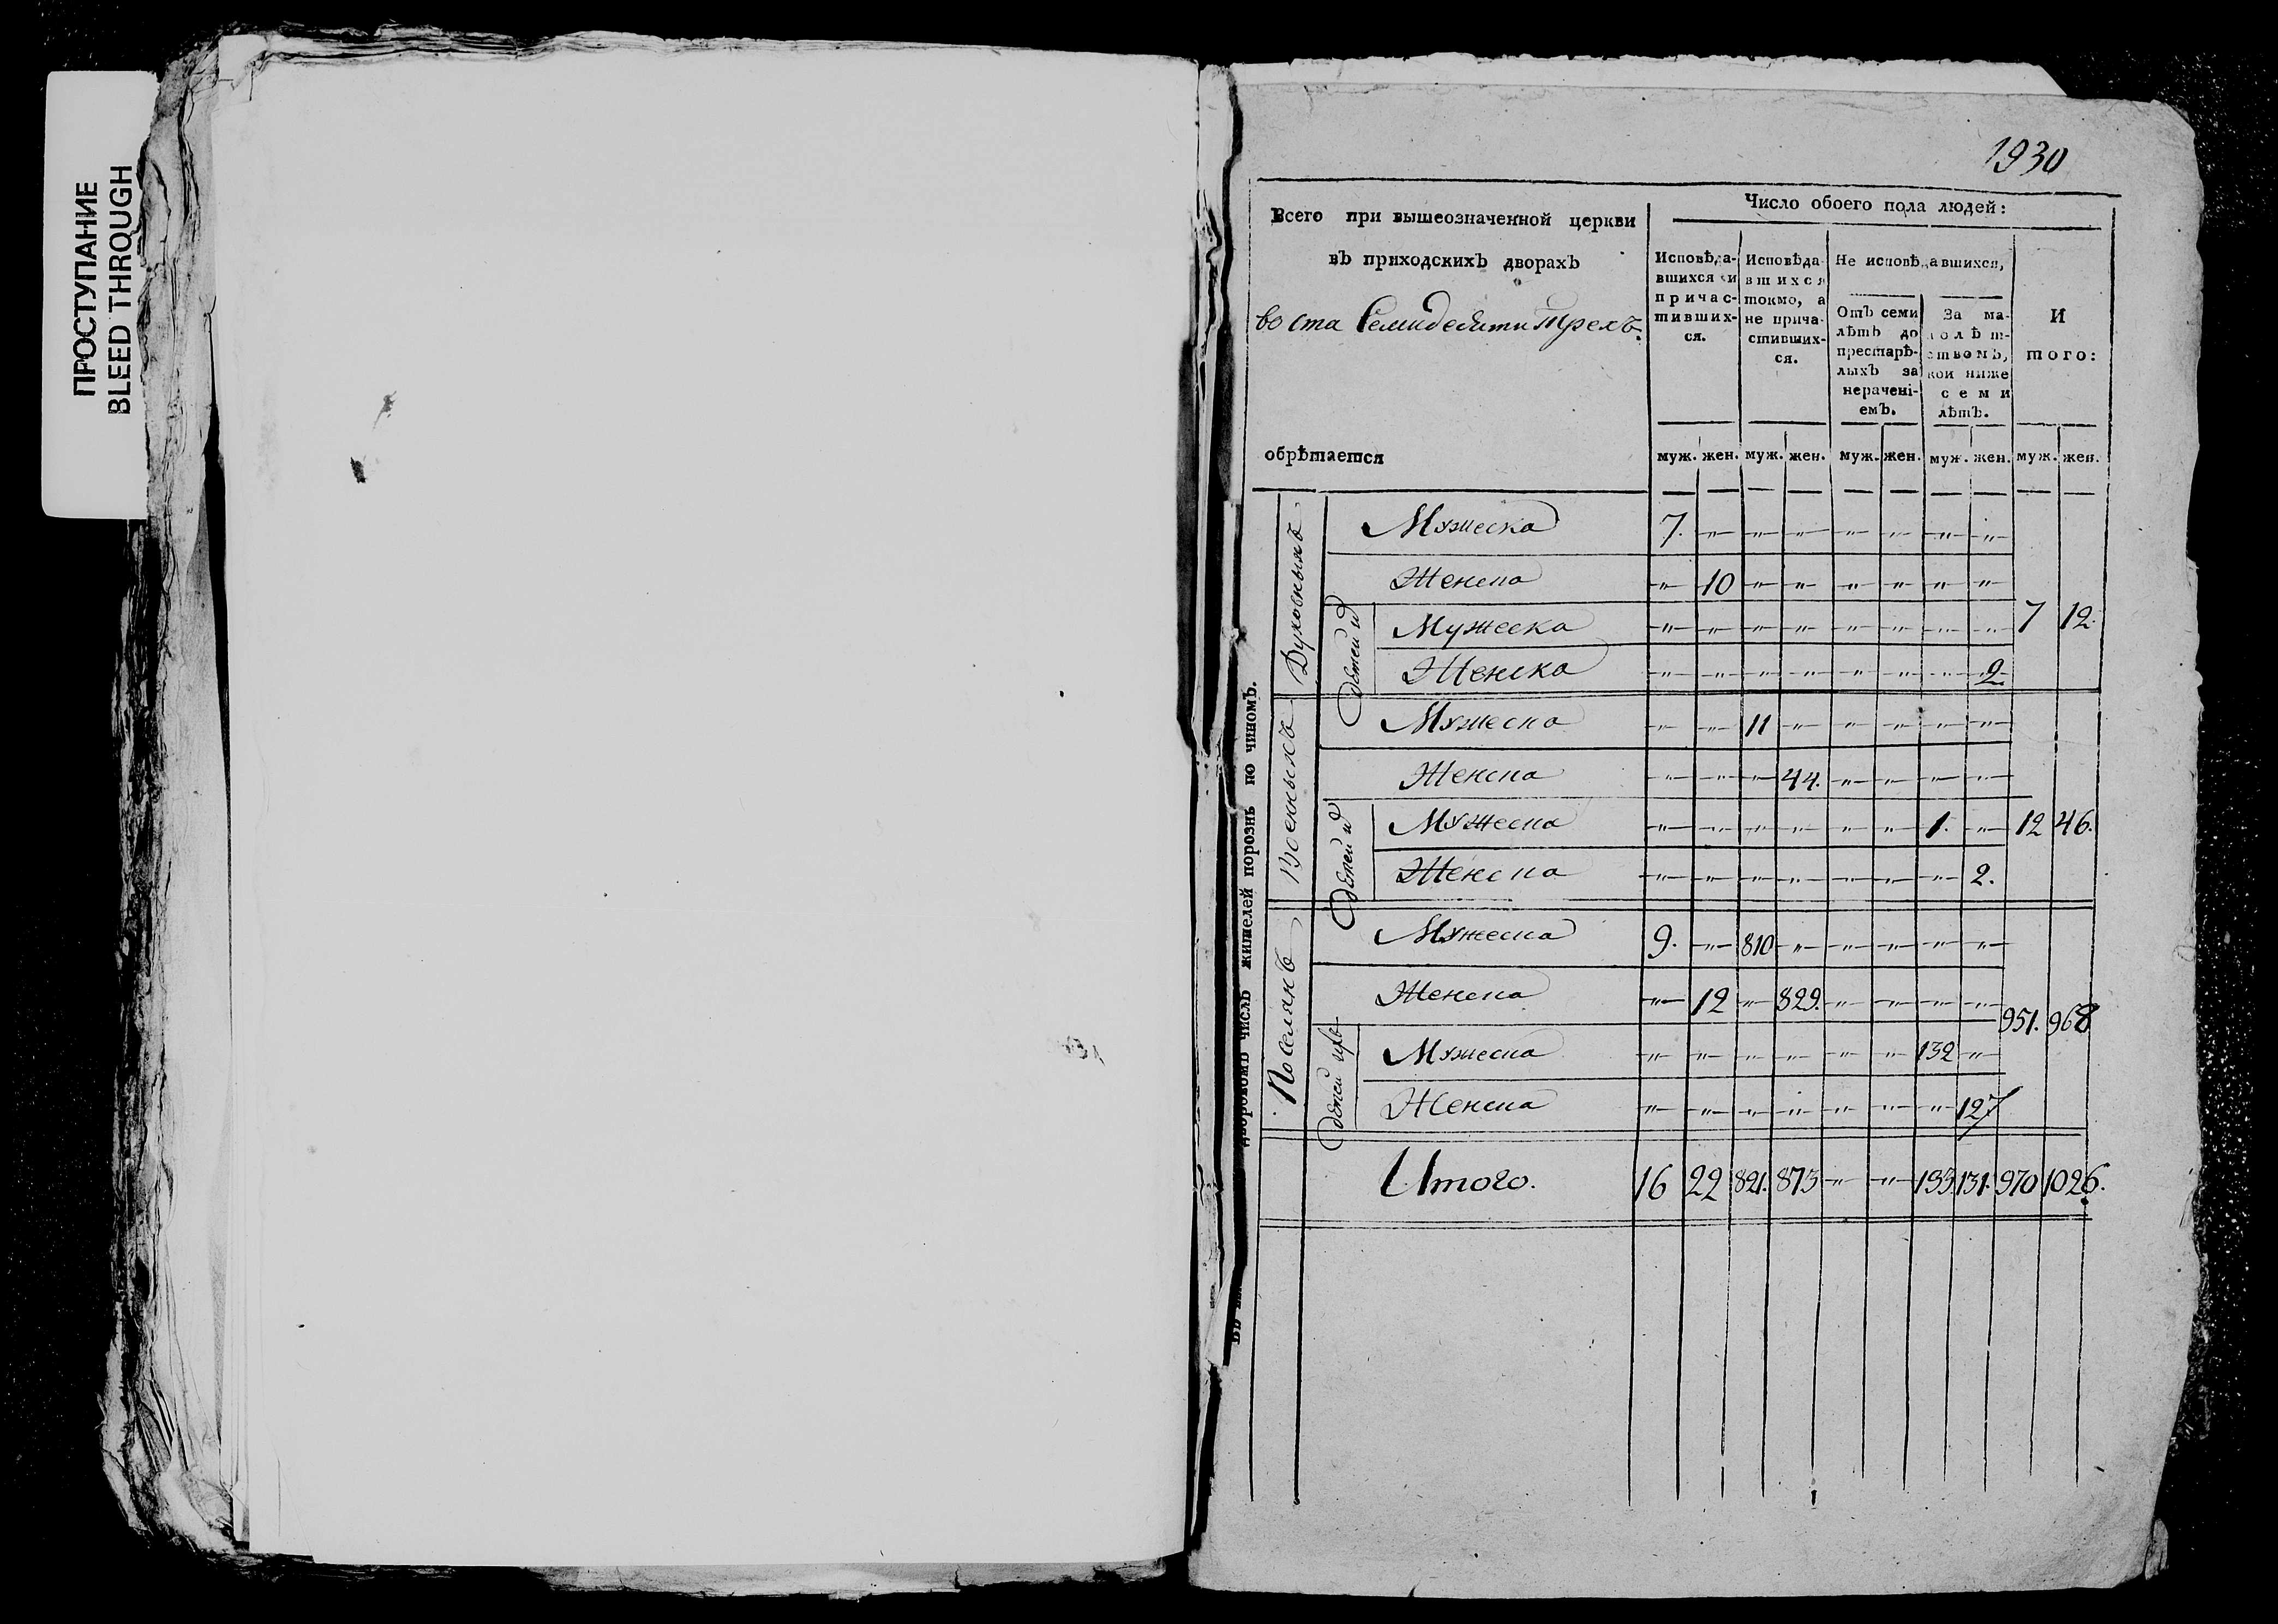 ПРОСТУПАНИЕ
BLEED THROUGH
1930
Всего при вышеозначенной церкви
въ приходскихъ дворахъ
во ста Семидесяти трехъ
обрѣтается
Число обоего пола людей:
Исповѣда-
вшихся и
причас-
тивших-
ся.
Исповѣда-
вшихся
токмо, а
не прича-
стивших-
ся.
Не исповѣдавшихся,
Отъ семи
лѣтъ до
престарѣ-
лыхъ за
нерачені-
емъ.
За ма-
лолѣт-
ствомъ,
кои ниже
семи
лѣтъ.
И
того:
муж. жен. муж. жен. муж. жен. муж. жен. муж. жен.
жителей порознь по чиномъ.
Духовныхъ
Мужеска 7. " " " " " " "
Женска " 10 " " " " " "
Детей их
Мужеска " " " " " " " "
Женска " " " " " " " 2.
7 12.
Военныхъ
Мужеска " " 11 " " " " "
Женска " " " 44. " " " "
Детей их
Мужеска " " " " " " 1. "
Женска " " " " " " " 2.
12 46.
Поселянъ
Мужеска 9. " 810 " " " " "
Женска " 12 " 829. " " " "
Детей ихъ
Мужеска " " " " " " 132 "
Женска " " " " " " " 127
951. 968
Итого. 16 22 821. 873 " " 133. 131. 970 1026.